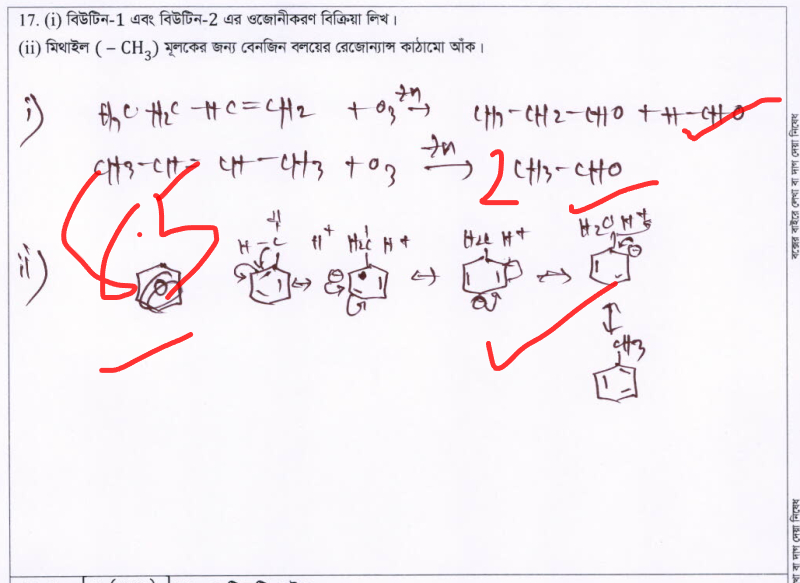 17. (i) বিউটিন-1 এবং বিউটিন-2 এর ওজোনীকরণ বিক্রিয়া লিখ।
(ii) মিথাইল ( – CH₃) মূলকের জন্য বেনজিন বলয়ের রেজোন্যান্স কাঠামো আঁক।
i) H₃C H₂C – HC = CH₂ + O₃ Zn → CH₃ – CH₂ – CHO + H – CHO
CH₃ – CH = CH – CH₃ + O₃ Zn → 2 CH₃ – CHO
1.5
ii) H – C H⁺ H₂C H⁺ ↔ H₂C H⁺ ↔ H₂C H⁺
CH₃
বক্সের বাইরে লেখা বা দাগ দেয়া নিষেধ
বা দাগ দেয়া নিষেধ